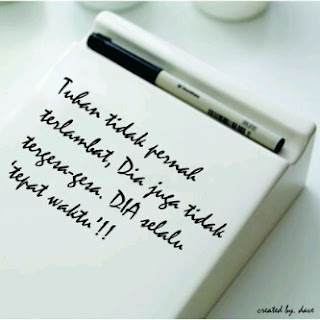 Tuhan tidak pernah
terlambat, Dia juga tidak
tergesa-gesa. DIA selalu
'tepat waktu'!!
created by. dave